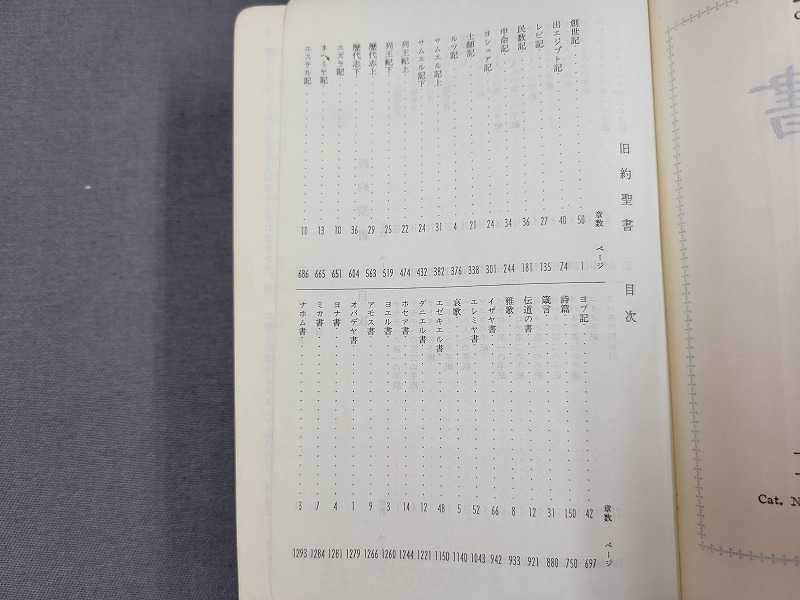 旧約聖書 目次
章数 ページ
創世記 50 1
出エジプト記 40 74
レビ記 27 135
民数記 36 181
申命記 34 244
ヨシュア記 24 301
士師記 21 338
ルツ記 4 376
サムエル記上 31 382
サムエル記下 24 432
列王紀上 22 474
列王紀下 25 519
歴代志上 29 563
歴代志下 36 604
エズラ記 10 651
ネヘミヤ記 13 665
エステル記 10 686
章数 ページ
ヨブ記 42 697
詩篇 150 750
箴言 31 880
伝道の書 12 921
雅歌 8 933
イザヤ書 66 942
エレミヤ書 52 1043
哀歌 5 1140
エゼキエル書 48 1150
ダニエル書 12 1221
ホセア書 14 1244
ヨエル書 3 1260
アモス書 9 1266
オバデヤ書 1 1279
ヨナ書 4 1281
ミカ書 7 1284
ナホム書 3 1293
書
Cat. N